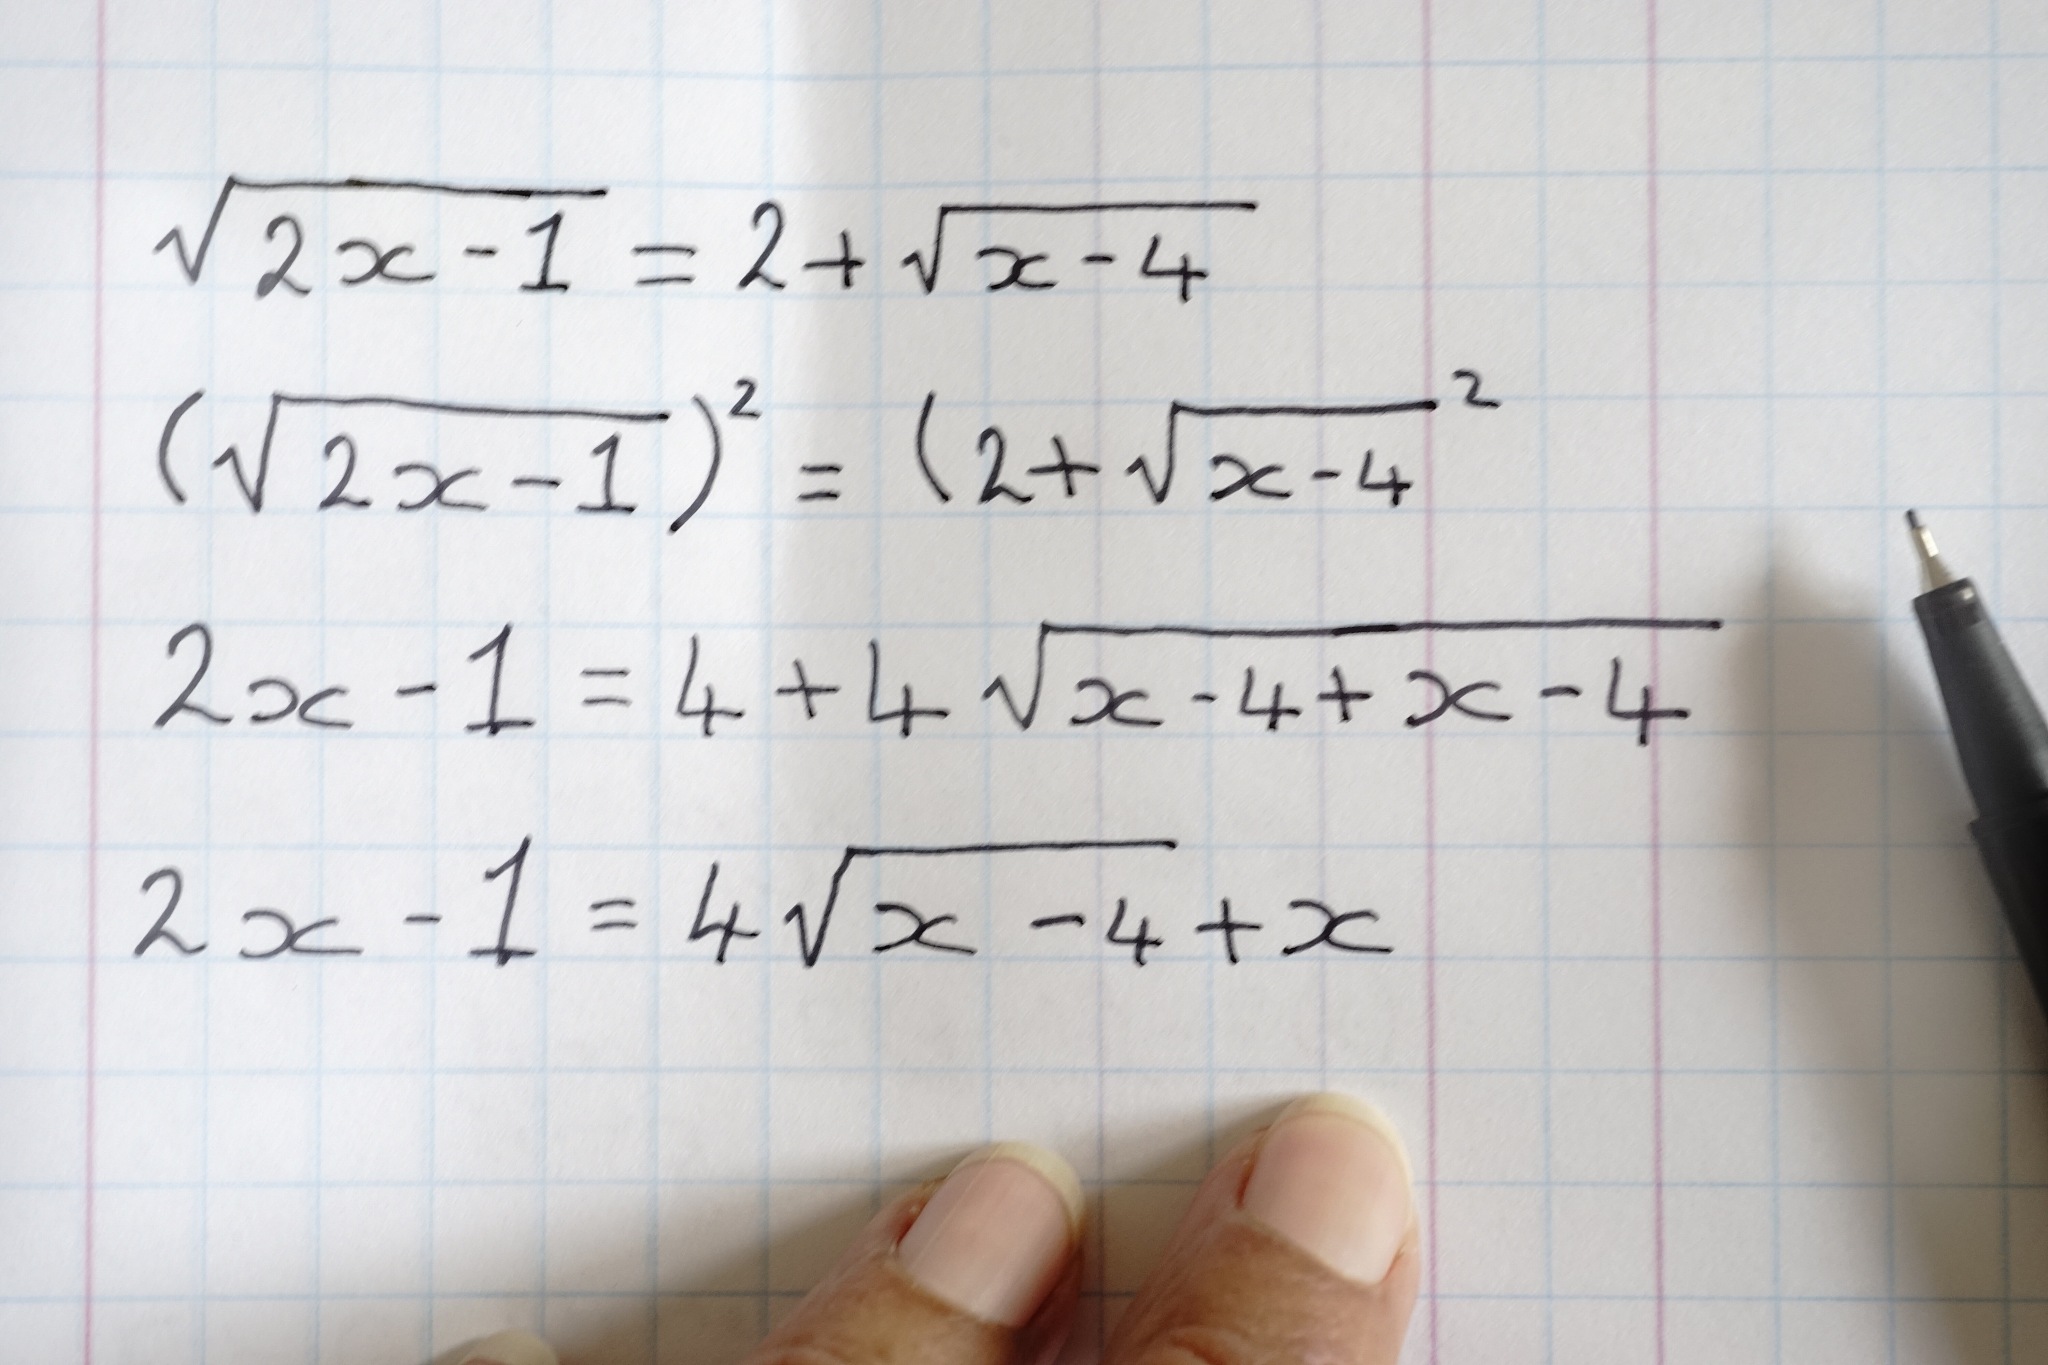 √(2x-1) = 2+√(x-4)
(√(2x-1))² = (2+√(x-4)²
2x-1 = 4+4√(x-4+x-4)
2x-1 = 4√(x-4)+x